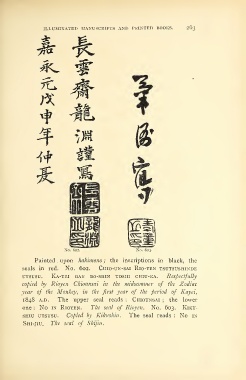 ILLUMINATED MANUSCRIPTS AND PAINTED BOOKS. 283
嘉永元戊申年仲夏
長雲齋龍淵謹寫
No. 602.
No. 603.
Painted upon kakimono; the inscriptions in black, the
seals in red. No. 602. CHO-UN-SAI RIO-YEN TSUTSUSHINDE
UTSUSU. KA-YEI GAN BO-SHIN TOSHI CHIU-KA. Respectfully
copied by Riōyen Chōunsai in the midsummer of the Zodiac
year of the Monkey, in the first year of the period of Kayei,
1848 A.D. The upper seal reads: CHOUNSAI; the lower
one: NO IN RIOYEN. The seal of Rioyen. No. 603.
UTSUSU. Copied by The seal reads: NO IN
The seal of